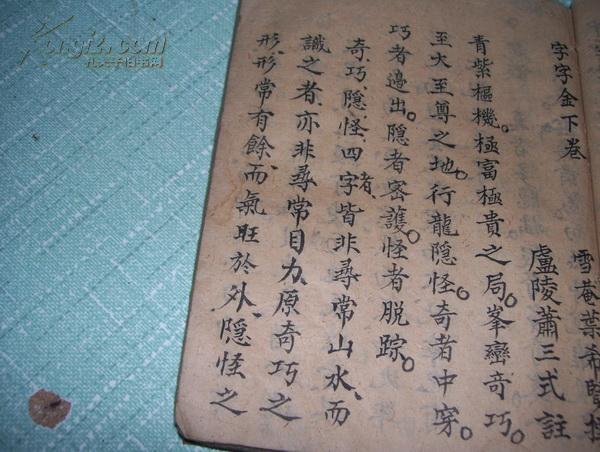 字字金下卷
雪菴葉希賢
盧陵蕭三式註
青紫樞機。極富極貴之局。峯巒奇巧。
至大至尊之地。行龍隱怪。奇者中穿。
巧者邊出。隱者密護。怪者脱踪。
奇、巧、隐、怪、四字者、皆非尋常山水、而
識之者、亦非尋常目力、原奇巧之
形、形常有餘、而氣旺於外、隐怪之